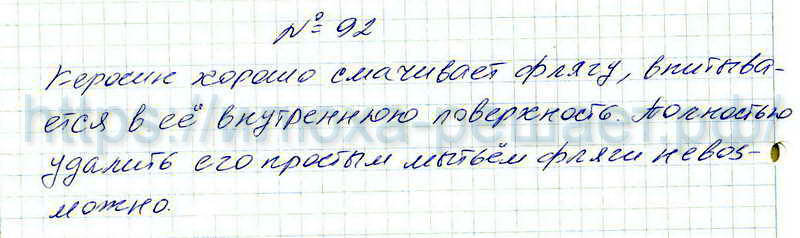 № 92
Керосин хорошо смачивает флягу, впитыва-
ется в её внутреннюю поверхность. Полностью
удалить его простым мытьём фляги невоз-
можно.